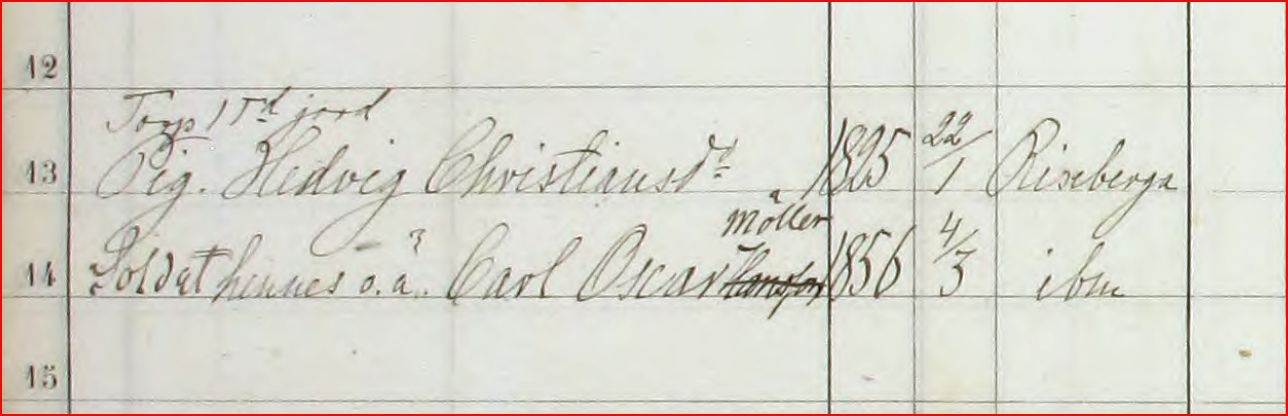 12
Torp 1 Td jord
13 Pig. Hedvig Christiansdr 1825 22/1 Riseberga
Möller
14 Soldat hennes o.ä. Carl Oscar 1856 4/3 ibm
15